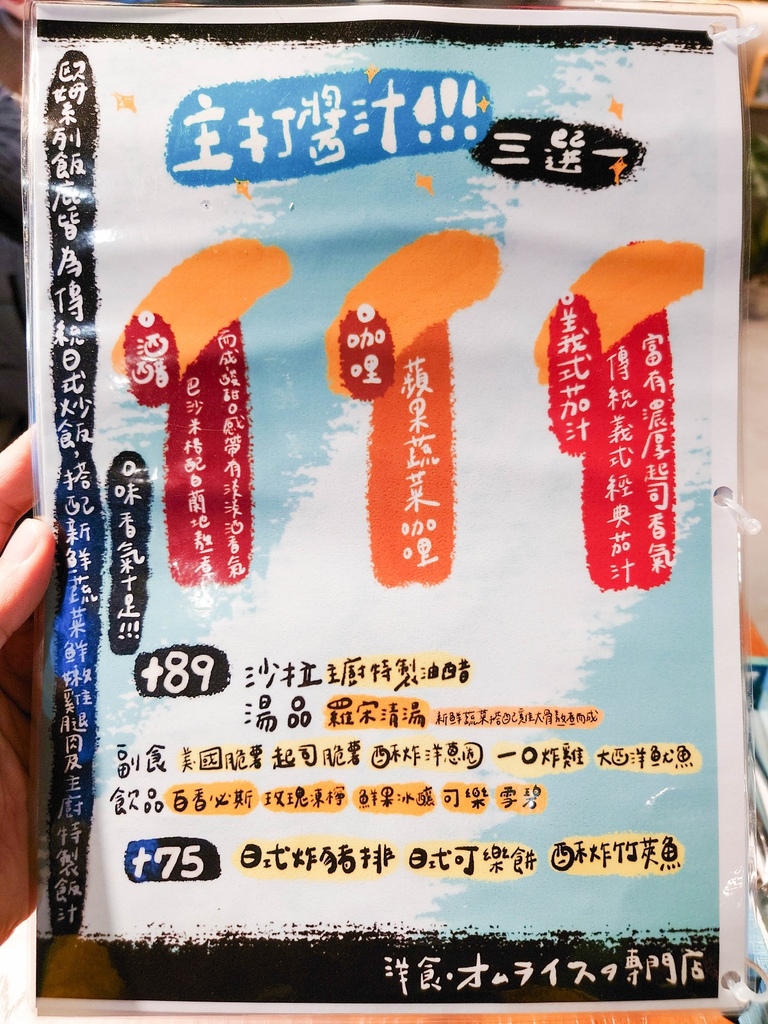 主打醬汁!!!
三選一
歐姆系列飯底皆為傳統日式炒飯,搭配新鮮蔬菜鮮嫩雞腿肉及主廚特製飯汁
口味香氣十足!!!
酒醋
巴沙米搭配白蘭地熬煮
而成酸甜口感帶有淡淡酒香氣
咖哩
蘋果蔬菜咖哩
義式茄汁
傳統義式經典茄汁
富有濃厚起司香氣
+89
沙拉 主廚特製油醋
湯品 羅宋清湯 新鮮蔬菜搭配雞大骨熬煮而成
副食 美國脆薯 起司脆薯 酥炸洋蔥圈 一口炸雞 大西洋魷魚
飲品 百香必斯 玫瑰凍檸 鮮果冰釀 可樂 雪碧
+75 日式炸豬排 日式可樂餅 酥炸竹莢魚
洋食·オムライスの専門店